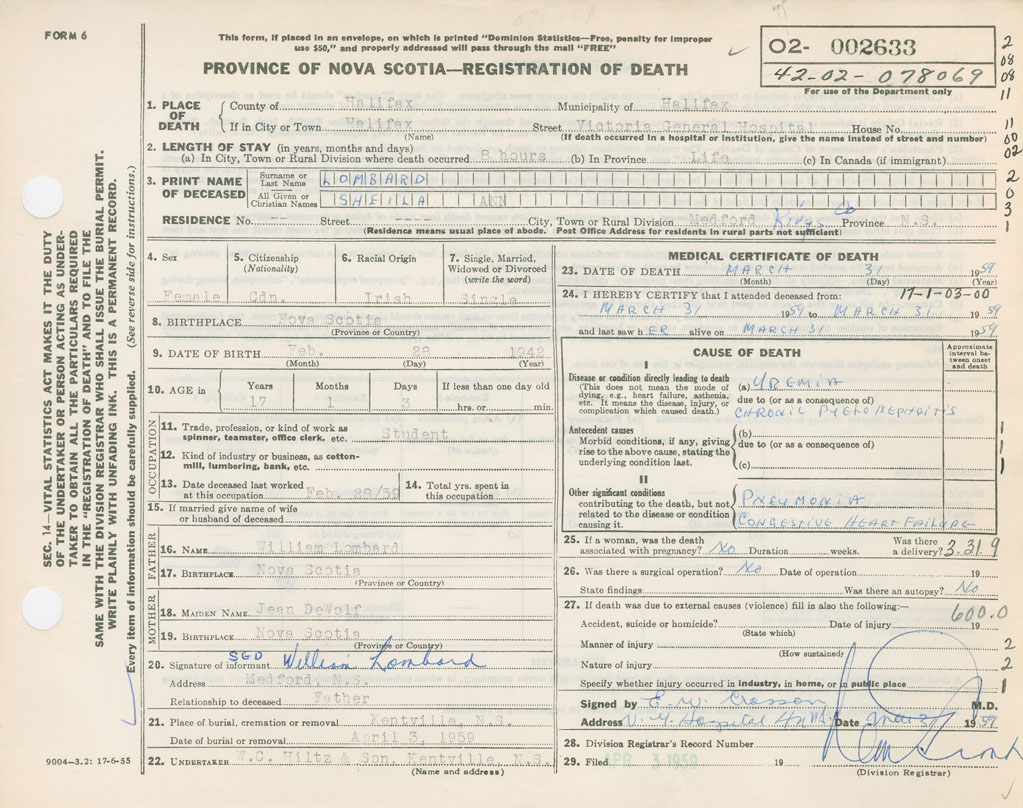 FORM 6
This form, if placed in an envelope, on which is printed "Dominion Statistics—Free, penalty for improper
use $50," and properly addressed will pass through the mail "FREE"
PROVINCE OF NOVA SCOTIA—REGISTRATION OF DEATH
02- 002633
42-02-078069
For use of the Department only
2
08
08
11
11
60
02
2
0
3
1
SEC. 14—VITAL STATISTICS ACT MAKES IT THE DUTY
OF THE UNDERTAKER OR PERSON ACTING AS UNDER-
TAKER TO OBTAIN ALL THE PARTICULARS REQUIRED
IN THE "REGISTRATION OF DEATH" AND TO FILE THE
SAME WITH THE DIVISION REGISTRAR WHO SHALL ISSUE THE BURIAL PERMIT.
WRITE PLAINLY WITH UNFADING INK. THIS IS A PERMANENT RECORD.
Every item of information should be carefully supplied. (See reverse side for instructions.)
1. PLACE OF DEATH County of Halifax Municipality of Halifax
If in City or Town Halifax Street Victoria General Hospital House No.
(Name) (If death occurred in a hospital or institution, give the name instead of street and number)
2. LENGTH OF STAY (in years, months and days)
(a) In City, Town or Rural Division where death occurred 8 hours (b) In Province Life (c) In Canada (if immigrant)
3. PRINT NAME OF DECEASED Surname or Last Name LOMBARD
All Given or Christian Names SHEILA ANN
RESIDENCE No. -- Street ---- City, Town or Rural Division Medford Kings Co Province N.S.
(Residence means usual place of abode. Post Office Address for residents in rural parts not sufficient)
4. Sex 5. Citizenship (Nationality) 6. Racial Origin 7. Single, Married, Widowed or Divorced (write the word)
Female Cdn. Irish Single
8. BIRTHPLACE Nova Scotia
(Province or Country)
9. DATE OF BIRTH Feb. 28 1942
(Month) (Day) (Year)
10. AGE in Years Months Days If less than one day old
17 1 3 hrs. or min.
OCCUPATION
11. Trade, profession, or kind of work as
spinner, teamster, office clerk, etc. Student
12. Kind of industry or business, as cotton-
mill, lumbering, bank, etc.
13. Date deceased last worked
at this occupation Feb. 28/59
14. Total yrs. spent in
this occupation
15. If married give name of wife
or husband of deceased
FATHER
16. NAME William Lombard
17. BIRTHPLACE Nova Scotia
(Province or Country)
MOTHER
18. MAIDEN NAME Jean DeWolf
19. BIRTHPLACE Nova Scotia
(Province or Country)
20. Signature of informant SGD William Lombard
Address Medford, N.S.
Relationship to deceased Father
21. Place of burial, cremation or removal Kentville, N.S.
Date of burial or removal April 3, 1959
22. UNDERTAKER W.C. Hiltz & Son, Kentville, N.S.
(Name and address)
9004—3.2: 17-6-55
MEDICAL CERTIFICATE OF DEATH
23. DATE OF DEATH MARCH 31 1959
(Month) (Day) (Year)
24. I HEREBY CERTIFY that I attended deceased from: 17-1-03-00
MARCH 31 1959 to MARCH 31 1959
and last saw h ER alive on MARCH 31 1959
CAUSE OF DEATH
Approximate
interval be-
tween onset
and death
I
Disease or condition directly leading to death
(This does not mean the mode of
dying, e.g., heart failure, asthenia,
etc. It means the disease, injury, or
complication which caused death.)
(a) UREMIA
due to (or as a consequence of)
CHRONIC PYELONEPHRITIS
Antecedent causes
Morbid conditions, if any, giving
rise to the above cause, stating the
underlying condition last.
(b)
due to (or as a consequence of)
(c)
1
1
1
II
Other significant conditions
contributing to the death, but not
related to the disease or condition
causing it.
PNEUMONIA
CONGESTIVE HEART FAILURE
25. If a woman, was the death
associated with pregnancy? No Duration weeks. Was there
a delivery? 3.31.9
26. Was there a surgical operation? No Date of operation 19
State findings Was there an autopsy? No
27. If death was due to external causes (violence) fill in also the following:—
600.0
Accident, suicide or homicide? Date of injury 19
(State which)
Manner of injury 2
(How sustained)
Nature of injury 2
Specify whether injury occurred in industry, in home, or in public place 1
Signed by E. W. Crosson M.D.
Address V. G. Hospital Date Mar 31 1959
28. Division Registrar's Record Number
29. Filed APR 3 1959 19
(Division Registrar)